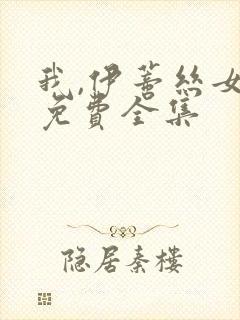 我,伊蒂丝女
免费全集
隐居秦楼